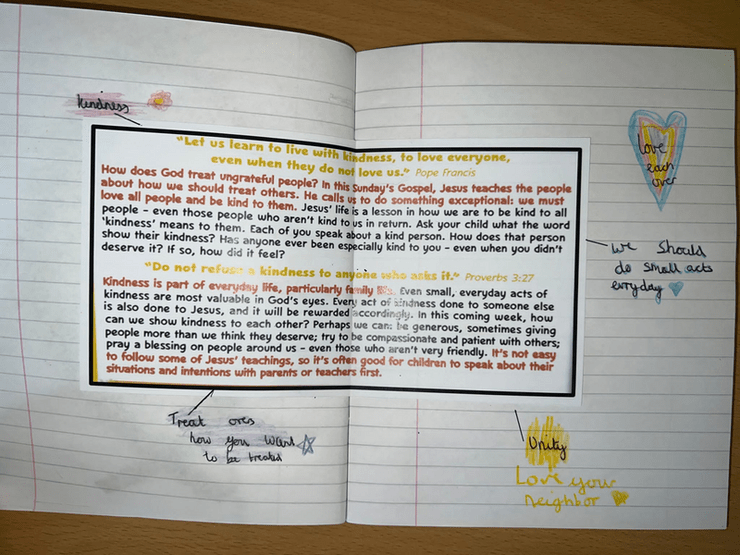 kindness
"Let us learn to live with kindness, to love everyone,
even when they do not love us." Pope Francis
How does God treat ungrateful people? In this Sunday's Gospel, Jesus teaches the people
about how we should treat others. He calls us to do something exceptional: we must
love all people and be kind to them. Jesus' life is a lesson in how we are to be kind to all
people – even those people who aren't kind to us in return. Ask your child what the word
'kindness' means to them. Each of you speak about a kind person. How does that person
show their kindness? Has anyone ever been especially kind to you – even when you didn't
deserve it? If so, how did it feel?
"Do not refuse a kindness to anyone who asks it." Proverbs 3:27
Kindness is part of everyday life, particularly family life. Even small, everyday acts of
kindness are most valuable in God's eyes. Every act of kindness done to someone else
is also done to Jesus, and it will be rewarded accordingly. In this coming week, how
can we show kindness to each other? Perhaps we can: be generous, sometimes giving
people more than we think they deserve; try to be compassionate and patient with others;
pray a blessing on people around us – even those who aren't very friendly. It's not easy
to follow some of Jesus' teachings, so it's often good for children to speak about their
situations and intentions with parents or teachers first.
Love
each
over
we should
do small acts
evryday
Treat ovrs
how you want
to be treated
Unity
Love your
neighbor